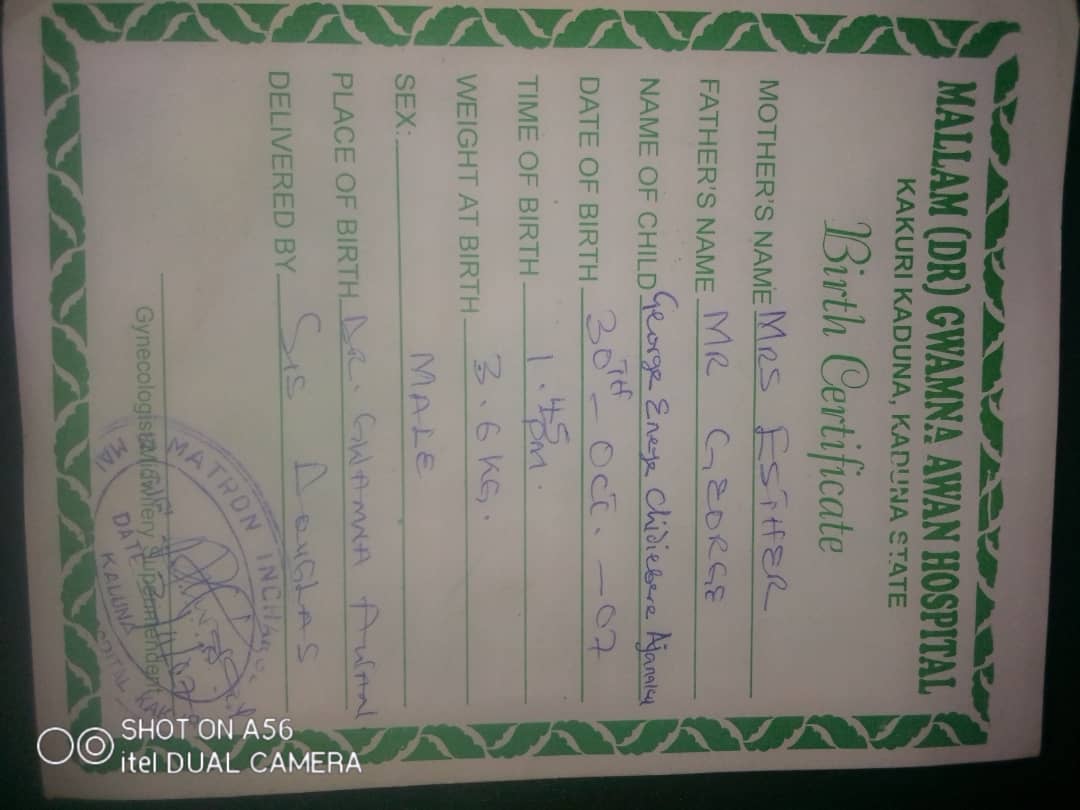 MALLAM (DR) GWAMNA AWAN HOSPITAL
KAKURI KADUNA, KADUNA STATE
Birth Certificate
MOTHER'S NAME MRS ESTHER
FATHER'S NAME MR GEORGE
NAME OF CHILD George Eneye Chidiebere Ajanaku
DATE OF BIRTH 30TH - OCT. - 07
TIME OF BIRTH 1.45 PM.
WEIGHT AT BIRTH 3.6 KG.
SEX: MALE
PLACE OF BIRTH DR. GWAMNA AWAN
DELIVERED BY SIS DOUGLAS
Gynecologist/Midwifery Superintendent
MATRON INCHARGE
DATE
SHOT ON A56
itel DUAL CAMERA